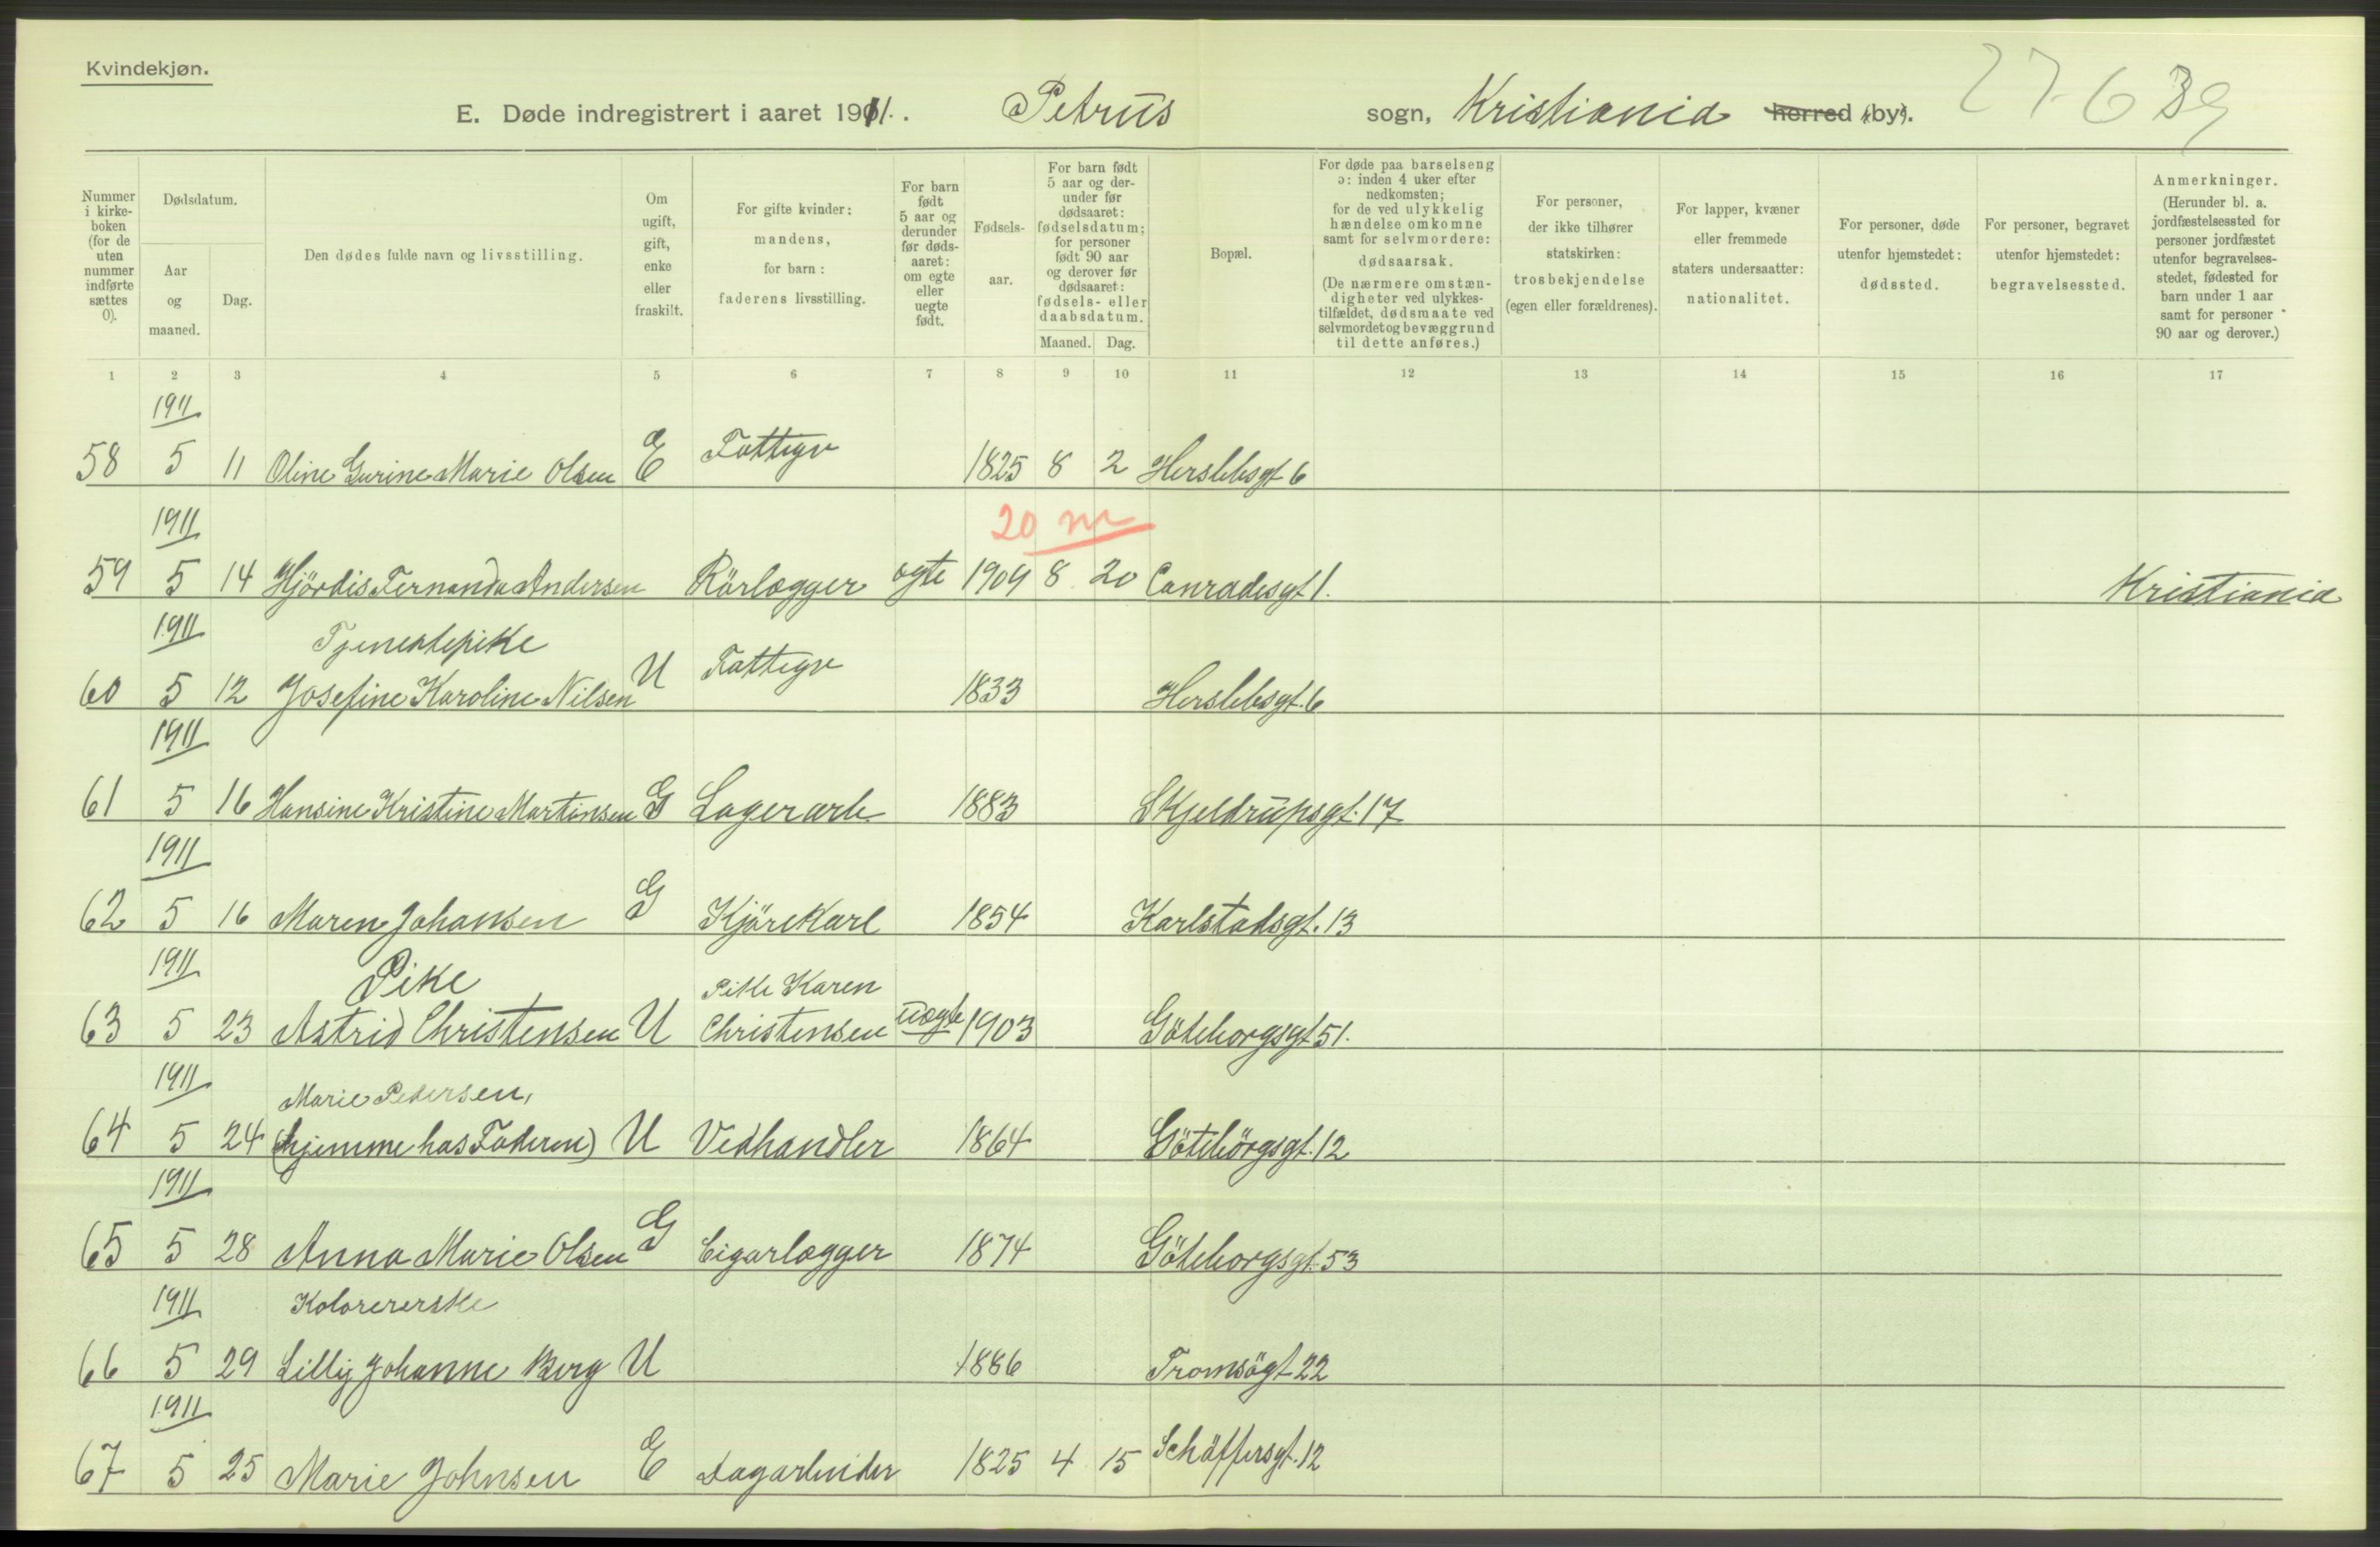 Kvindekjøn.
E. Døde indregistrert i aaret 1911. Petrus sogn, Kristiania herred (by). 27-639
Nummer i kirke-boken (for de uten nummer indførte sættes 0).
Dødsdatum.
Aar og maaned.
Dag.
Den dødes fulde navn og livsstilling.
Om ugift, gift, enke eller fraskilt.
For gifte kvinder: mandens, for barn: faderens livsstilling.
For barn født 5 aar og derunder før døds-aaret: om egte eller uegte født.
Fødsels-aar.
For barn født 5 aar og der-under før dødsaaret: fødselsdatum; for personer født 90 aar og derover før dødsaaret: fødsels- eller daabsdatum.
Maaned. Dag.
Bopæl.
For døde paa barselseng ɔ: inden 4 uker efter nedkomsten; for de ved ulykkelig hændelse omkomne samt for selvmordere: dødsaarsak. (De nærmere omstæn-digheter ved ulykkes-tilfældet, dødsmaate ved selvmordet og bevæggrund til dette anføres.)
For personer, der ikke tilhører statskirken: trosbekjendelse (egen eller forældrenes).
For lapper, kvæner eller fremmede staters undersaatter: nationalitet.
For personer, døde utenfor hjemstedet: dødssted.
For personer, begravet utenfor hjemstedet: begravelsessted.
Anmerkninger. (Herunder bl. a. jordfæstelsessted for personer jordfæstet utenfor begravelses-stedet, fødested for barn under 1 aar samt for personer 90 aar og derover.)
1 2 3 4 5 6 7 8 9 10 11 12 13 14 15 16 17
1911
58 5 11 Oline Gurine Marie Olsen E Fattigv 1825 8 2 Herslebsgt 6
1911 20 m
59 5 14 Hjördis Fernanda Andersen Rörlægger egte 1909 8 20 Conradesgt 1. Kristiania
1911 Tjenestepike
60 5 12 Josefine Karoline Nilsen U Fattigv 1833 Herslebsgt. 6
1911
61 5 16 Hansine Kristine Martinsen G Lagerarb. 1883 Skjeldrupsgt. 17
1911
62 5 16 Maren Johansen G Kjörekarl 1854 Karlstadsgt. 13
1911 Pike Pike Karen
63 5 23 Astrid Christensen U Christensen uægte 1903 Göteborgsgt 51.
1911 Marie Pedersen,
64 5 24 (hjemme hos Faderen) U Vedhandler 1864 Götebörgsgt. 12
1911
65 5 28 Anna Marie Olsen G Cigarlægger 1874 Göteborgsgt. 53
1911 Kolorererske
66 5 29 Lilly Johanne Berg U 1886 Tromsögt 22
1911
67 5 25 Marie Johnsen E Dagarbeider 1825 4 15 Schäffersgt. 12